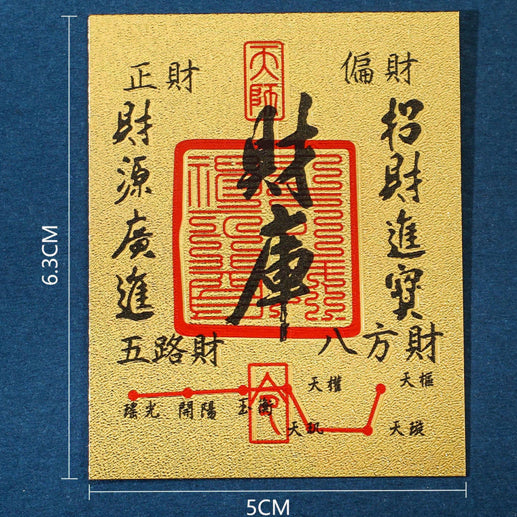 天師
正財
偏財
財源廣進
財庫
招財進寶
五路財
八方財
令
瑤光
開陽
玉衡
天權
天樞
天璣
天璇
6.3CM
5CM